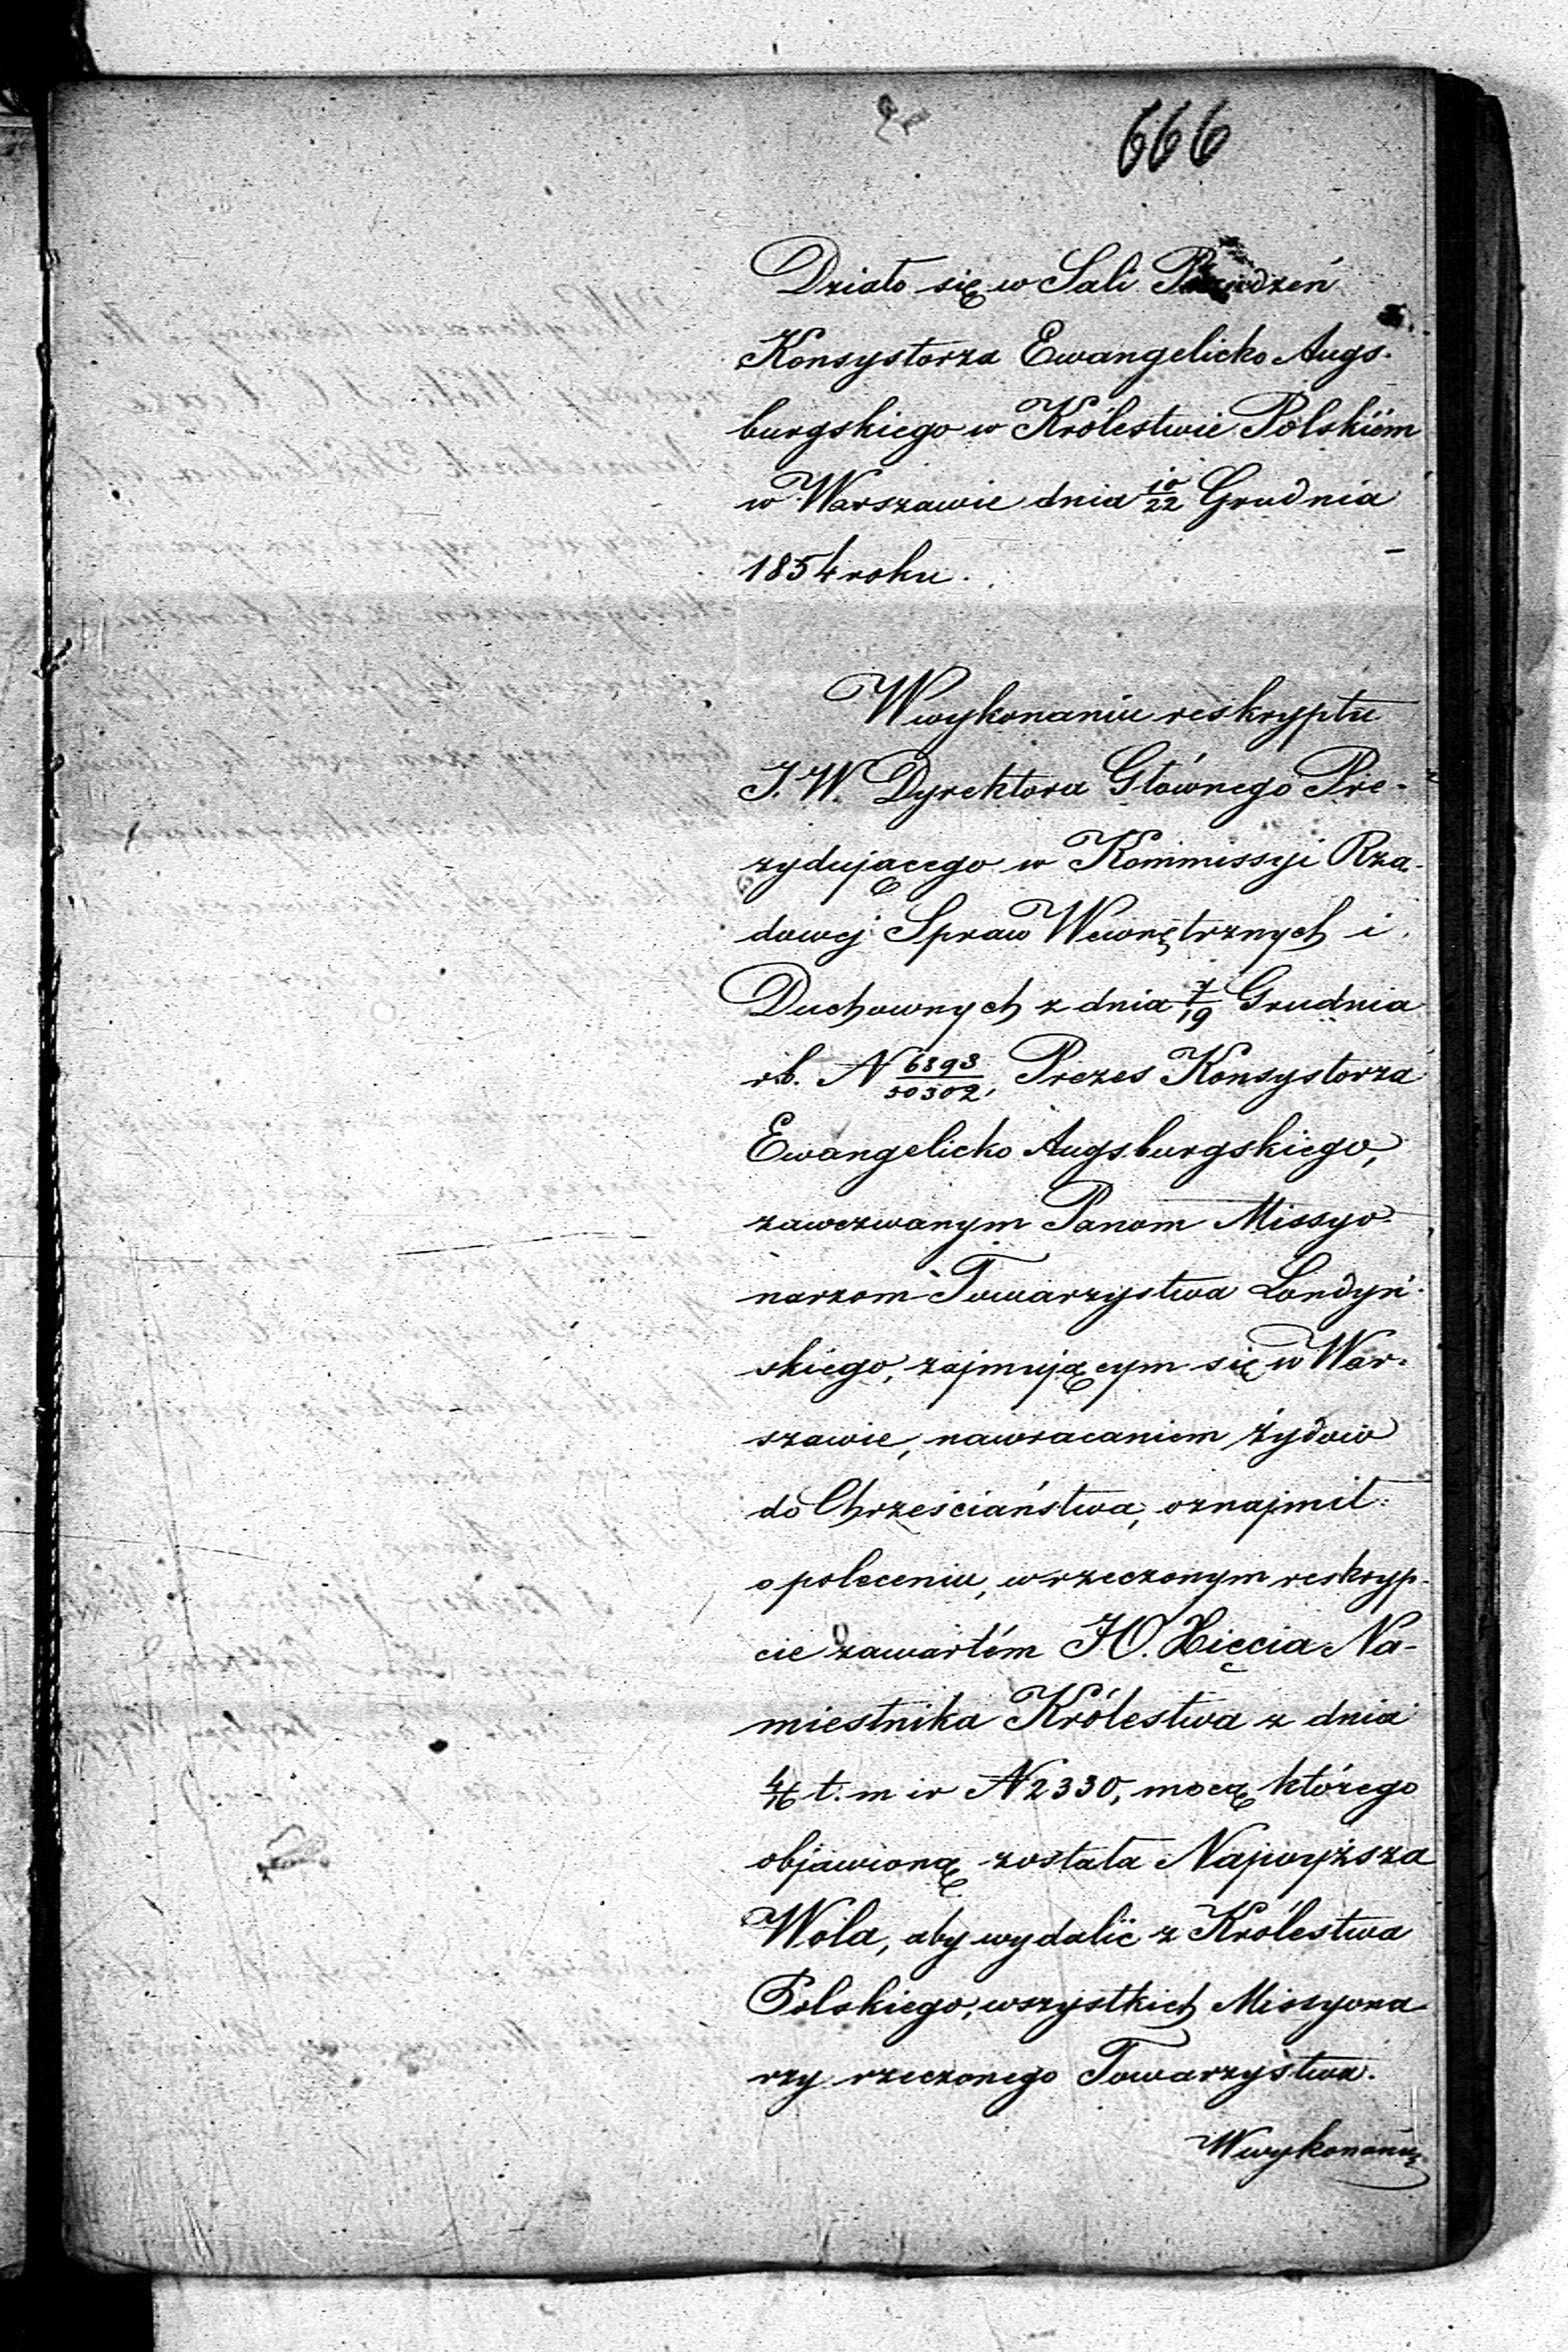 666
Działo się w Sali Posiedzeń
Konsystorza Ewangelicko Augs-
burgskiego w Królestwie Polskiém
w Warszawie dnia 10/22 Grudnia
1854 roku.
W wykonaniu reskryptu
J. W. Dyrektora Głównego Pre-
zydującego w Kommissyi Rzą-
dowej Spraw Wewnętrznych i
Duchownych z dnia 7/19 Grudnia
r.b. N 6393/30302, Prezes Konsystorza
Ewangelicko Augsburgskiego,
zawezwanym Panom Missyo-
narzom Towarzystwa Londyń-
skiego, zajmującym się w War-
szawie, nawracaniem żydów
do Chrześciaństwa, oznajmił
o poleceniu, w rzeczonym reskryp-
cie zawartém JO. Xięcia Na-
miestnika Królestwa z dnia
4/16 t. m i r N 2330, mocą którego
objawioną została Najwyższa
Wola, aby wydalić z Królestwa
Polskiego, wszystkich Missyona-
rzy rzeczonego Towarzystwa.
W wykonaniu